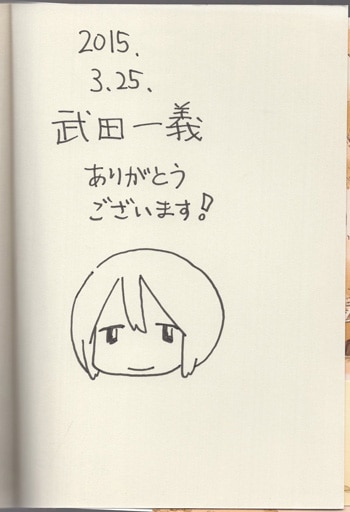 2015.
3.25.
武田一義
ありがとう
ございます!